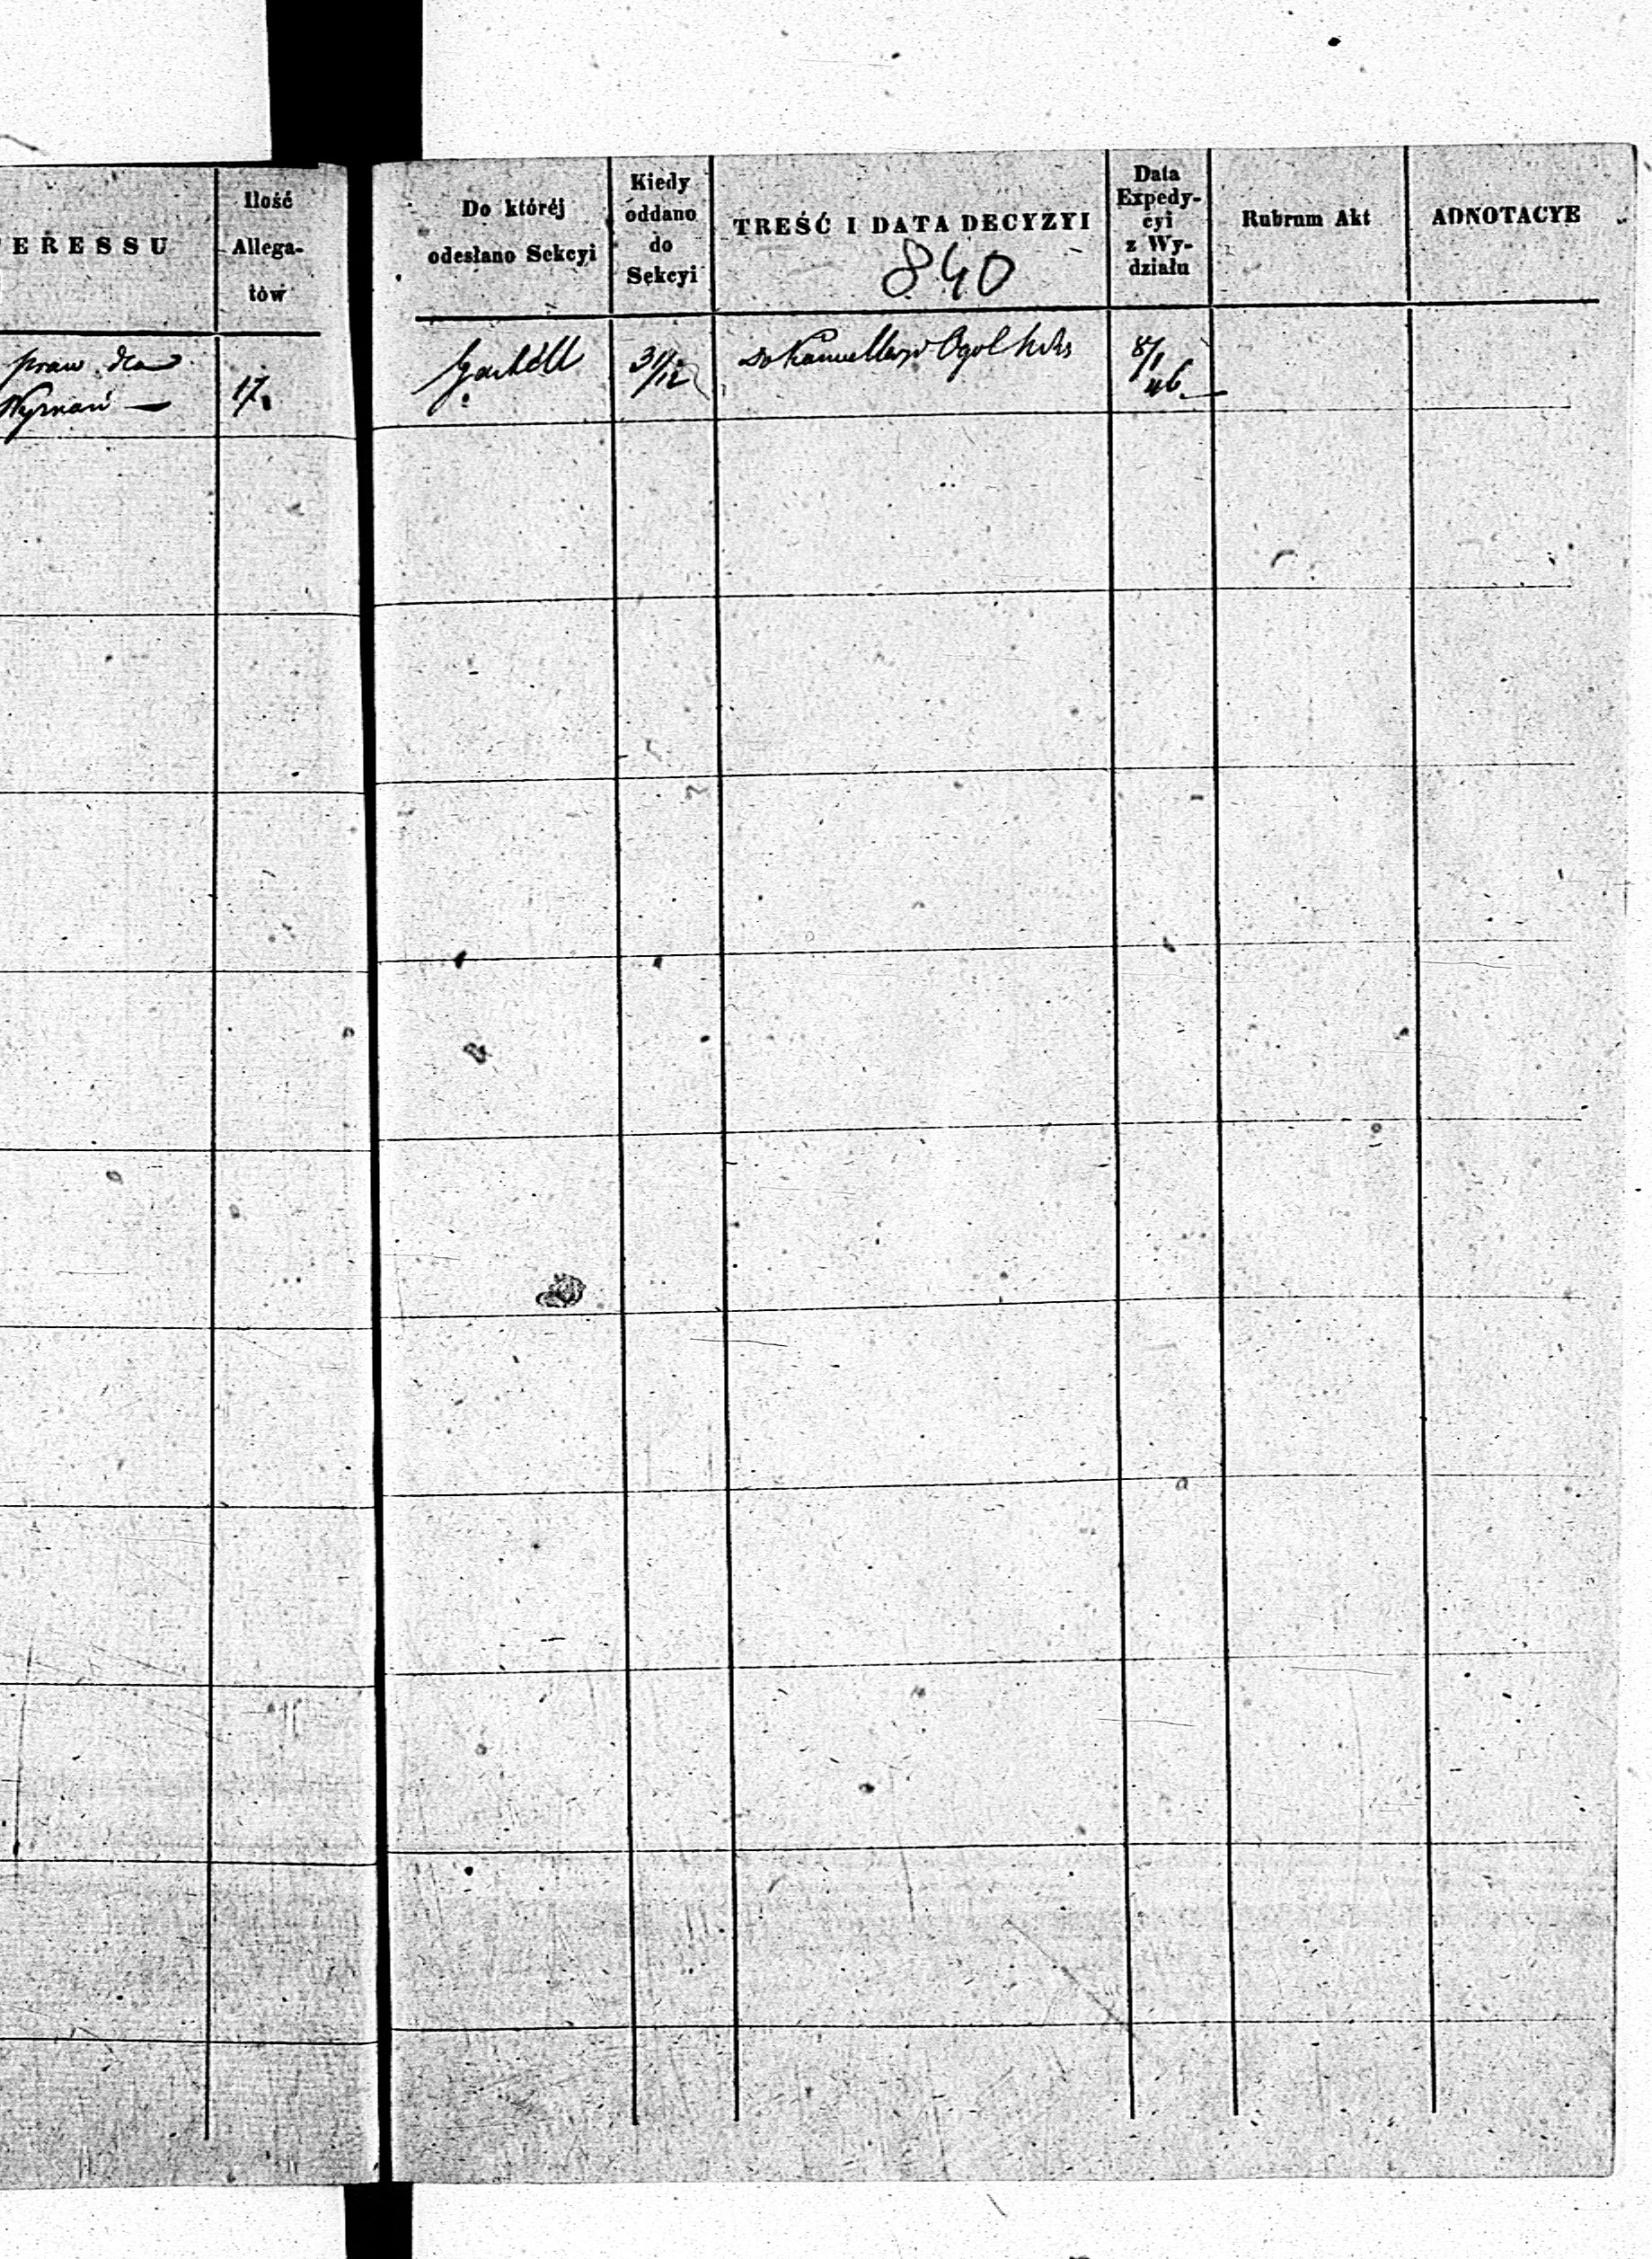 ERESSU
Ilość
Allega-
tów
praw dla
Wyznań —
17.
Do któréj
odesłano Sekcyi
Kiedy
oddano
do
Sekcyi
TREŚĆ I DATA DECYZYI
840
Data
Expedy-
cyi
z Wy-
działu
Rubrum Akt
ADNOTACYE
31/12
do
8/1
46.